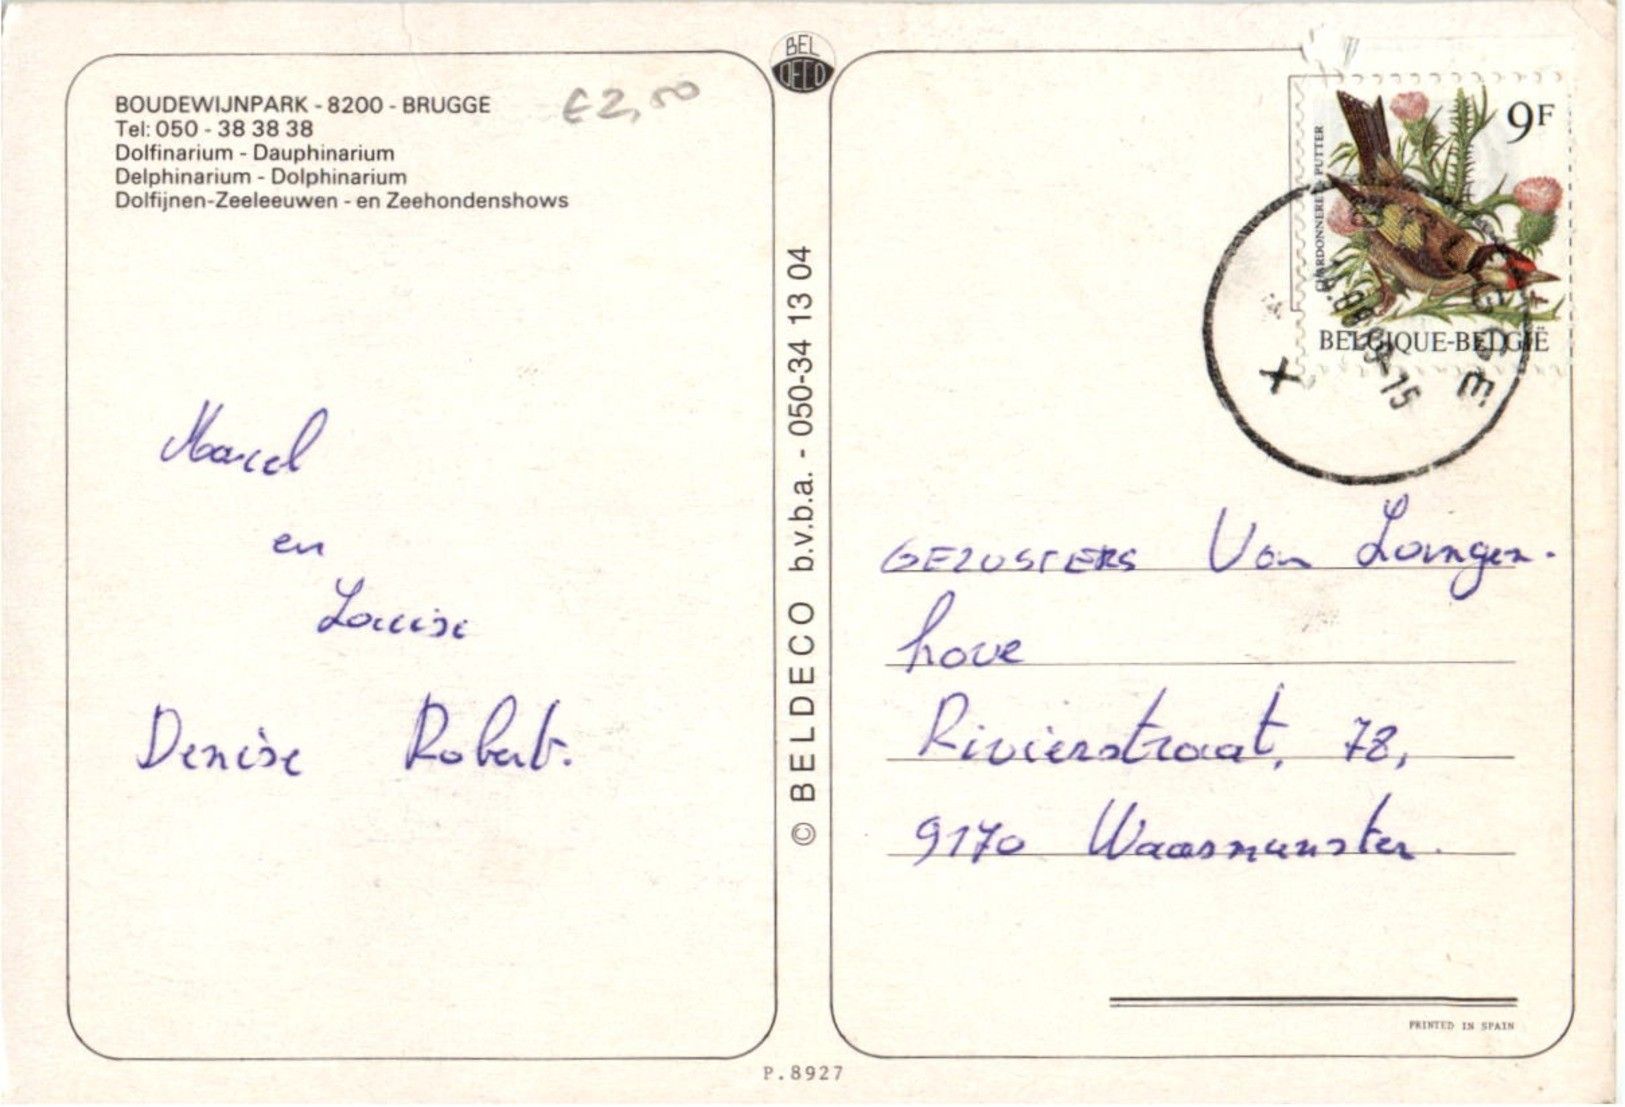 BEL
DECO
BOUDEWIJNPARK - 8200 - BRUGGE
Tel: 050 - 38 38 38
Dolfinarium - Dauphinarium
Delphinarium - Dolphinarium
Dolfijnen-Zeeleeuwen - en Zeehondenshows
€2,50
Marcel
en
Louise
Denise Robert.
© BELDECO b.v.b.a. - 050-34 13 04
9F
PUTTER
BELGIQUE-BELGIË
X
GEZUSTERS Van Langen-
hove
Rivierstraat, 78,
9170 Waasmunster.
PRINTED IN SPAIN
P.8927